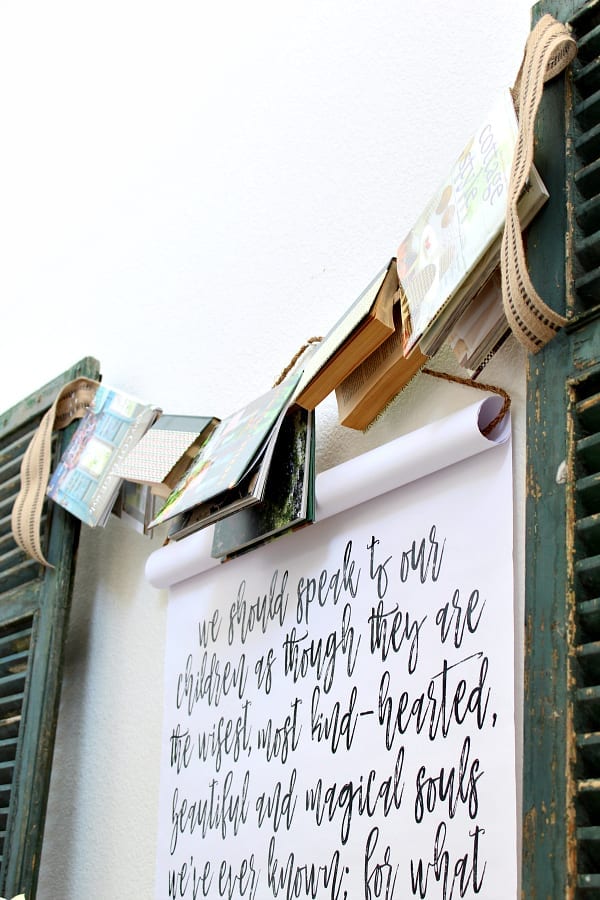 cottage
style
we should speak to our
children as though they are
the wisest, most kind-hearted,
beautiful and magical souls
we've ever known; for what